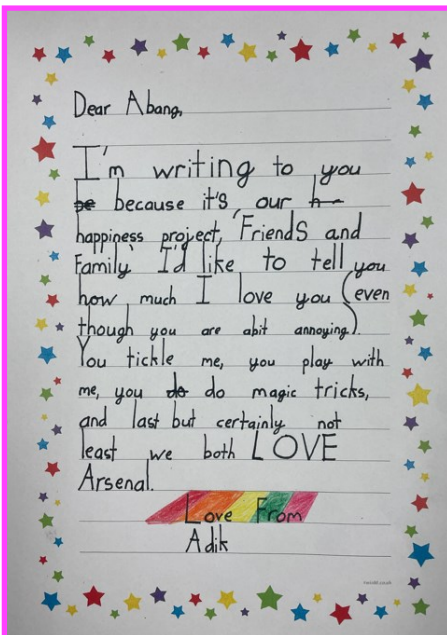 Dear Abang,
I'm writing to you
be because it's, our h
happiness project, 'Friends and
Family' I'd like to tell you
how much I love you (even
though you are abit annoying).
You tickle me, you play with
me, you do do magic tricks,
and last but certainly not
least we both LOVE
Arsenal.
Love From
Adik